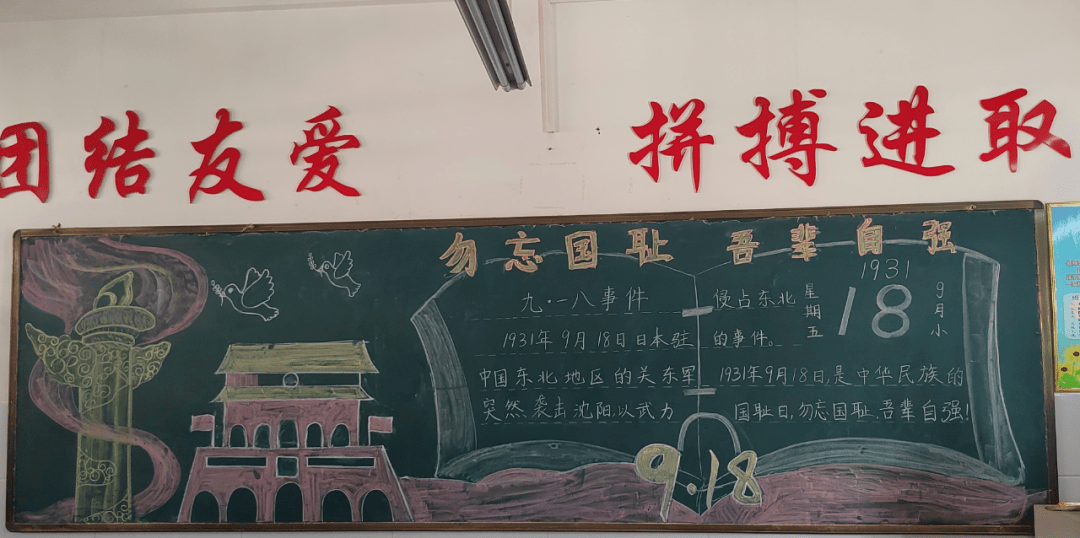 团结友爱
拼搏进取
勿忘国耻 吾辈自强
九·一八事件
1931年9月18日日本驻
中国东北地区的关东军
突然袭击沈阳,以武力
侵占东北
的事件。
星期五
1931
18
9月小
1931年9月18日,是中华民族的
国耻日,勿忘国耻,吾辈自强!
9.18